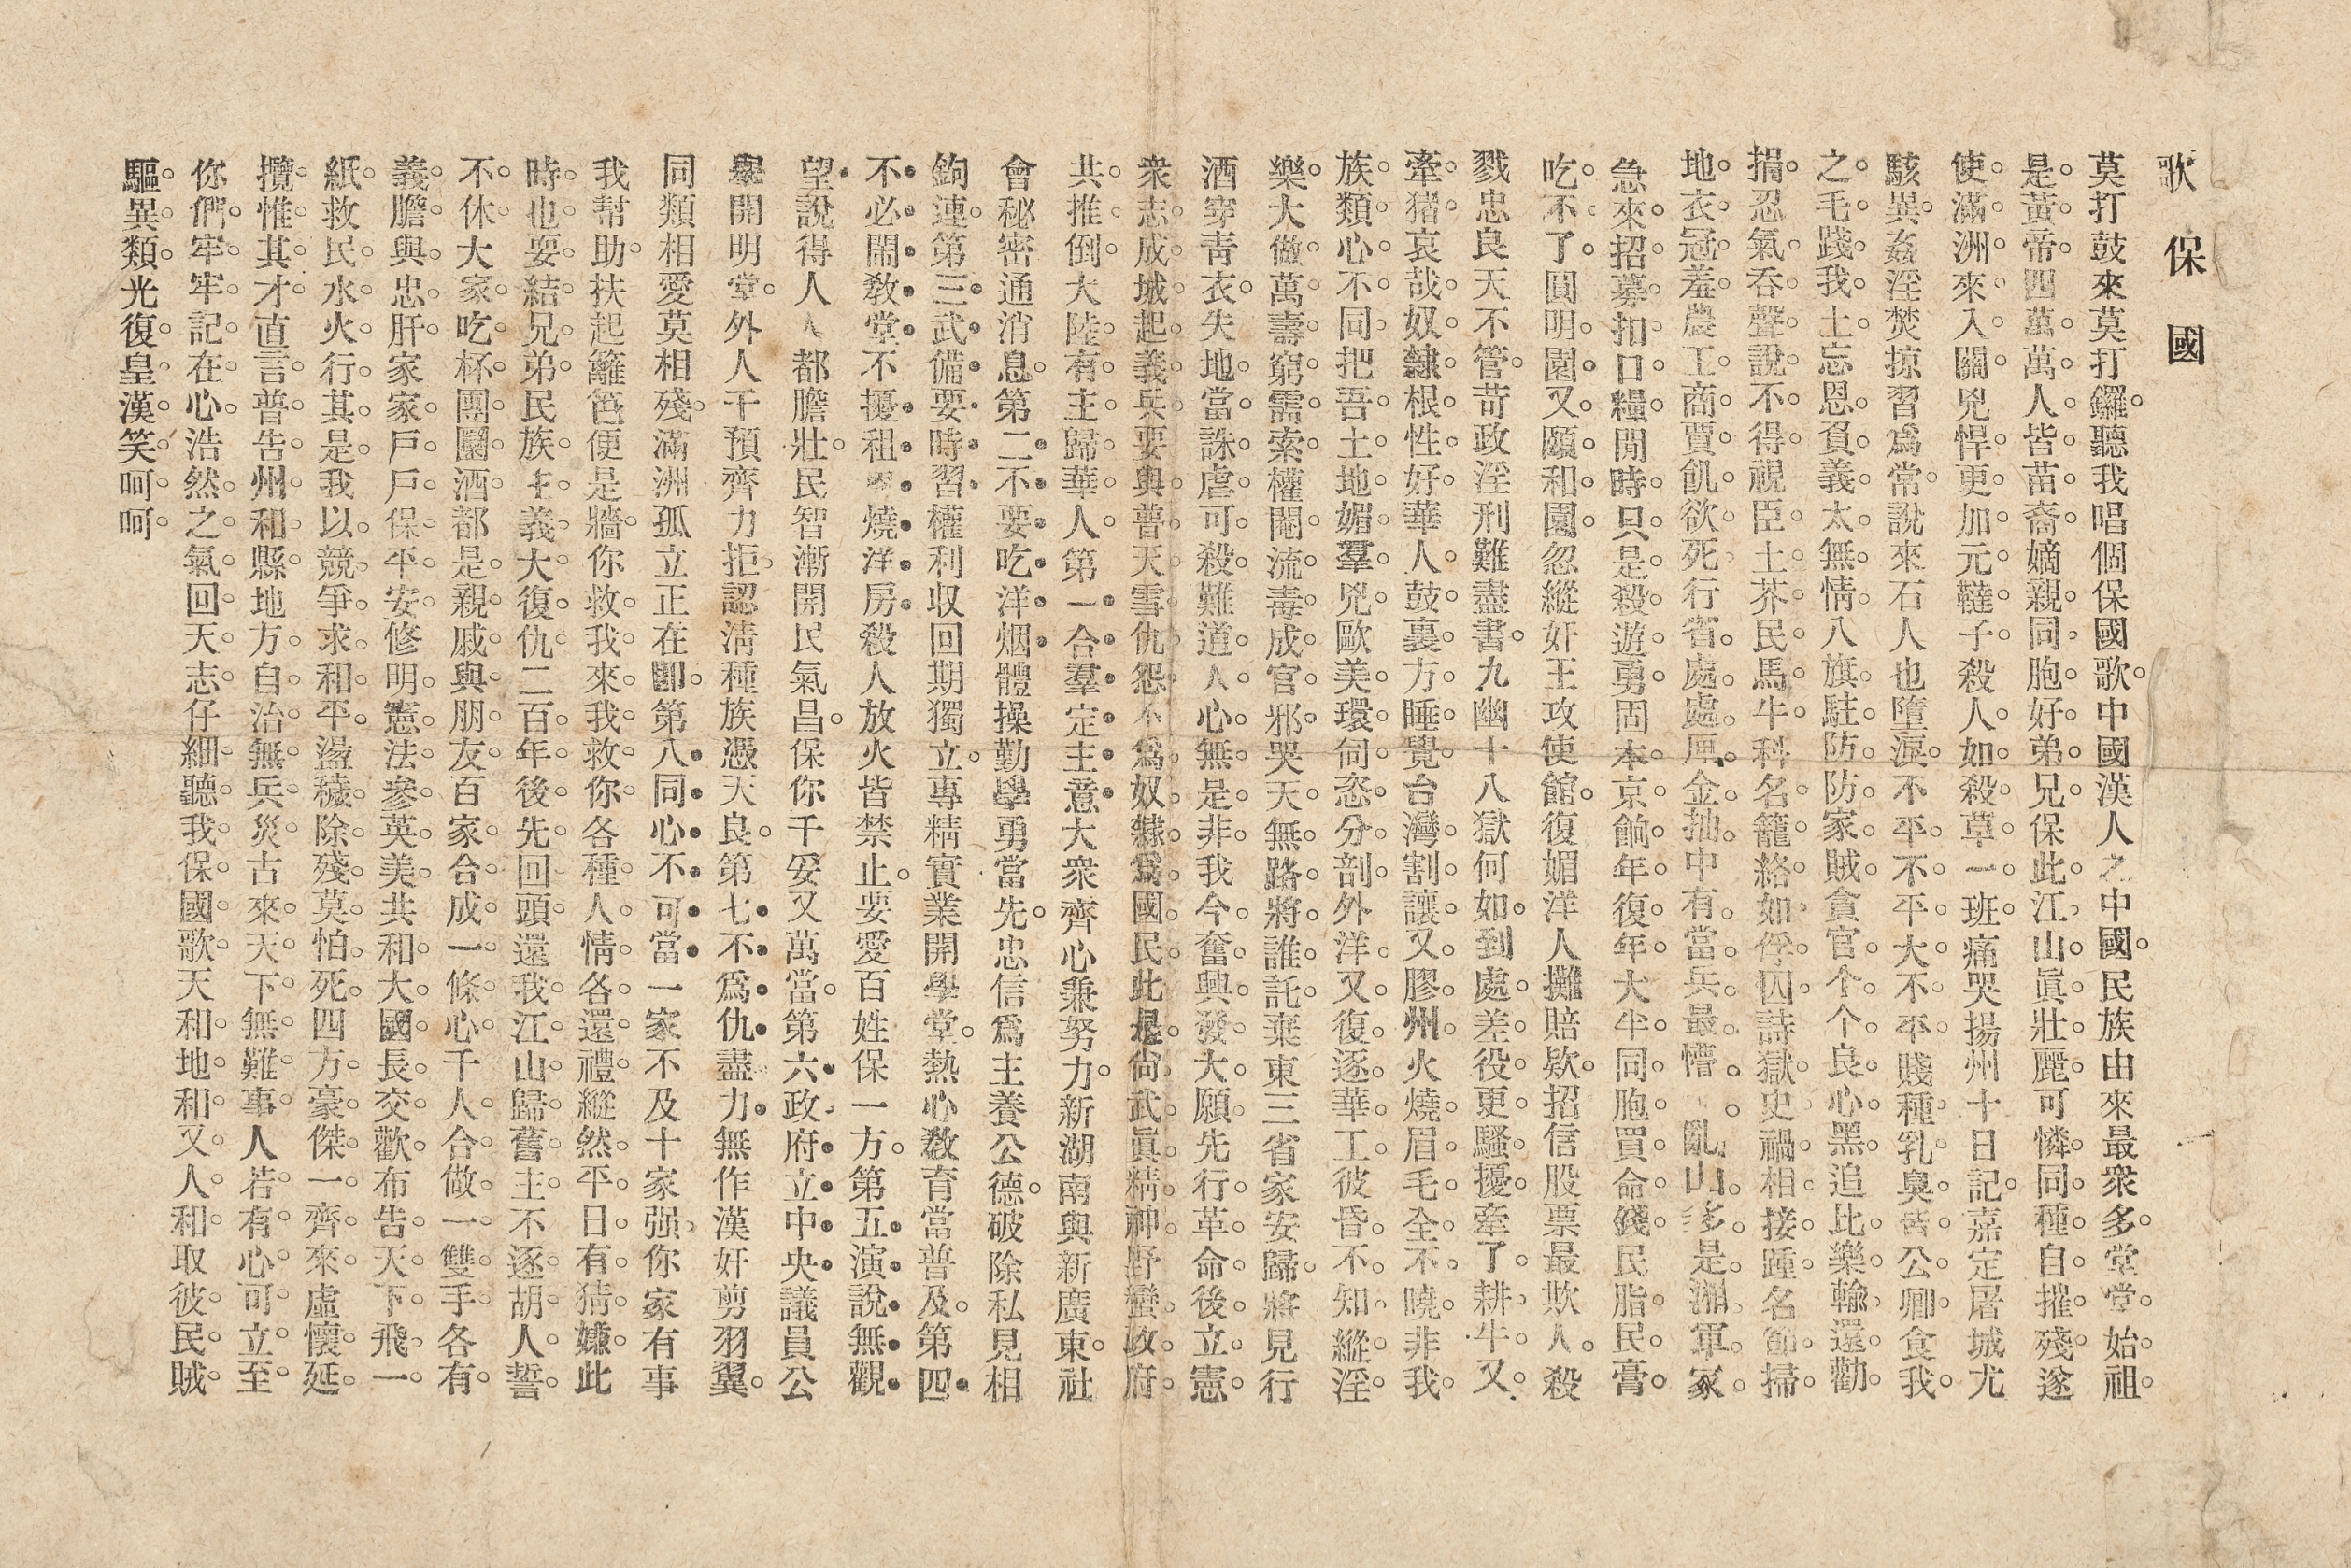 歌保國
莫打鼓來莫打鑼聽我唱個保國歌中國漢人之中國民族由來最衆多堂堂始祖
是黃帝四萬萬人皆苗裔嫡親同胞好弟兄保此江山眞壯麗可憐同種自摧殘遂
使滿洲來入關兇悍更加元韃子殺人如殺草一班痛哭揚州十日記嘉定屠城尤
駭異姦淫焚掠習爲常說來石人也墮淚不平不平大不平賤種乳臭皆公卿食我
之毛踐我土忘恩負義太無情八旗駐防防家賊貪官个个良心黑追比樂輸還勸
捐忍氣吞聲說不得視臣土芥民馬牛科名籠絡如俘囚詩獄史禍相接踵名節掃
地衣冠羞農工商賈飢欲死行省處處厘金抽中有當兵最懵亂山多是湘軍冢
急來招募扣口糧閒時只是殺遊勇固本京餉年復年大半同胞買命錢民脂民膏
吃不了圓明園又頤和園忽縱奸王攻使館復媚洋人攤賠欵招信股票最欺人殺
戮忠良天不管苛政淫刑難盡書九幽十八獄何如到處差役更騷擾牽了耕牛又
牽猪哀哉奴隸根性好華人鼓裏方睡覺台灣割讓又膠州火燒眉毛全不曉非我
族類心不同把吾土地媚羣兇歐美環伺恣分剖外洋又復逐華工彼昏不知縱淫
樂大做萬壽窮需索權閹流毒成官邪哭天無路將誰託棄東三省家安歸將見行
酒穿靑衣失地當誅虐可殺難道人心無是非我今奮興發大願先行革命後立憲
衆志成城起義兵要與普天雪仇怨不爲奴隸爲國民此是尙武眞精神野蠻政府
共推倒大陸有主歸華人第一合羣定主意大衆齊心兼努力新湖南與新廣東社
會秘密通消息第二不要吃洋烟體操勤學勇當先忠信爲主養公德破除私見相
鉤連第三武備要時習權利収回期獨立專精實業開學堂熱心敎育當普及第四
不必鬧敎堂不擾租界燒洋房殺人放火皆禁止要愛百姓保一方第五演說無觀
望說得人人都膽壯民智漸開民氣昌保你千妥又萬當第六政府立中央議員公
舉開明堂外人干預齊力拒認淸種族憑天良第七不爲仇盡力無作漢奸剪羽翼
同類相愛莫相殘滿洲孤立正在卽第八同心不可當一家不及十家强你家有事
我幫助扶起籬笆便是牆你救我來我救你各種人情各還禮縱然平日有猜嫌此
時也要結兄弟民族主義大復仇二百年後先回頭還我江山歸舊主不逐胡人誓
不休大家吃杯團圞酒都是親戚與朋友百家合成一條心千人合做一雙手各有
義膽與忠肝家家戶戶保平安修明憲法參英美共和大國長交歡布告天下飛一
紙救民水火行其是我以競爭求和平盪穢除殘莫怕死四方豪傑一齊來虛懷延
攬惟其才直言普告州和縣地方自治無兵災古來天下無難事人若有心可立至
你們牢牢記在心浩然之氣回天志仔細聽我保國歌天和地和又人和取彼民賊
驅異類光復皇漢笑呵呵